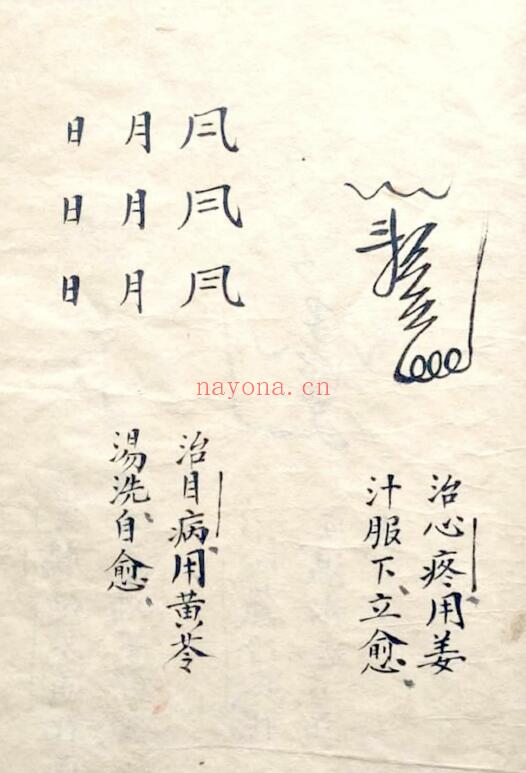 治心疼用姜
汁服下立愈
月
月
月
日
日
日
治目病用黄苓
湯洗自愈
nayona.cn